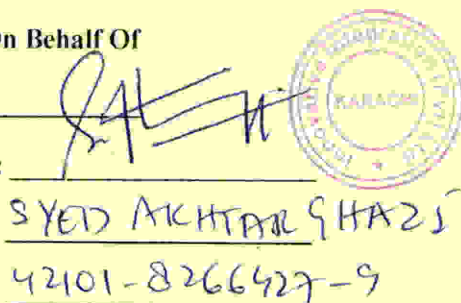 On Behalf Of
KARACHI
:
SYED AKHTAR GHAZI
42101-8266427-9